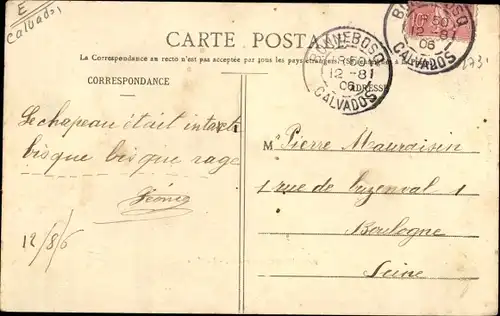 E
Calvados
CARTE POSTALE
La Correspondance au recto n'est pas acceptée par tous les pays étrangers
CORRESPONDANCE
ADRESSE
BONNEBOSQ
12 - 8
06
CALVADOS
BONNEBOSQ
12 - 8
06
CALVADOS
Le chapeau était intacte
bisque bisque rage
12/8/6
M Pierre Mauraisin
1 rue de 1
Boulogne
Seine